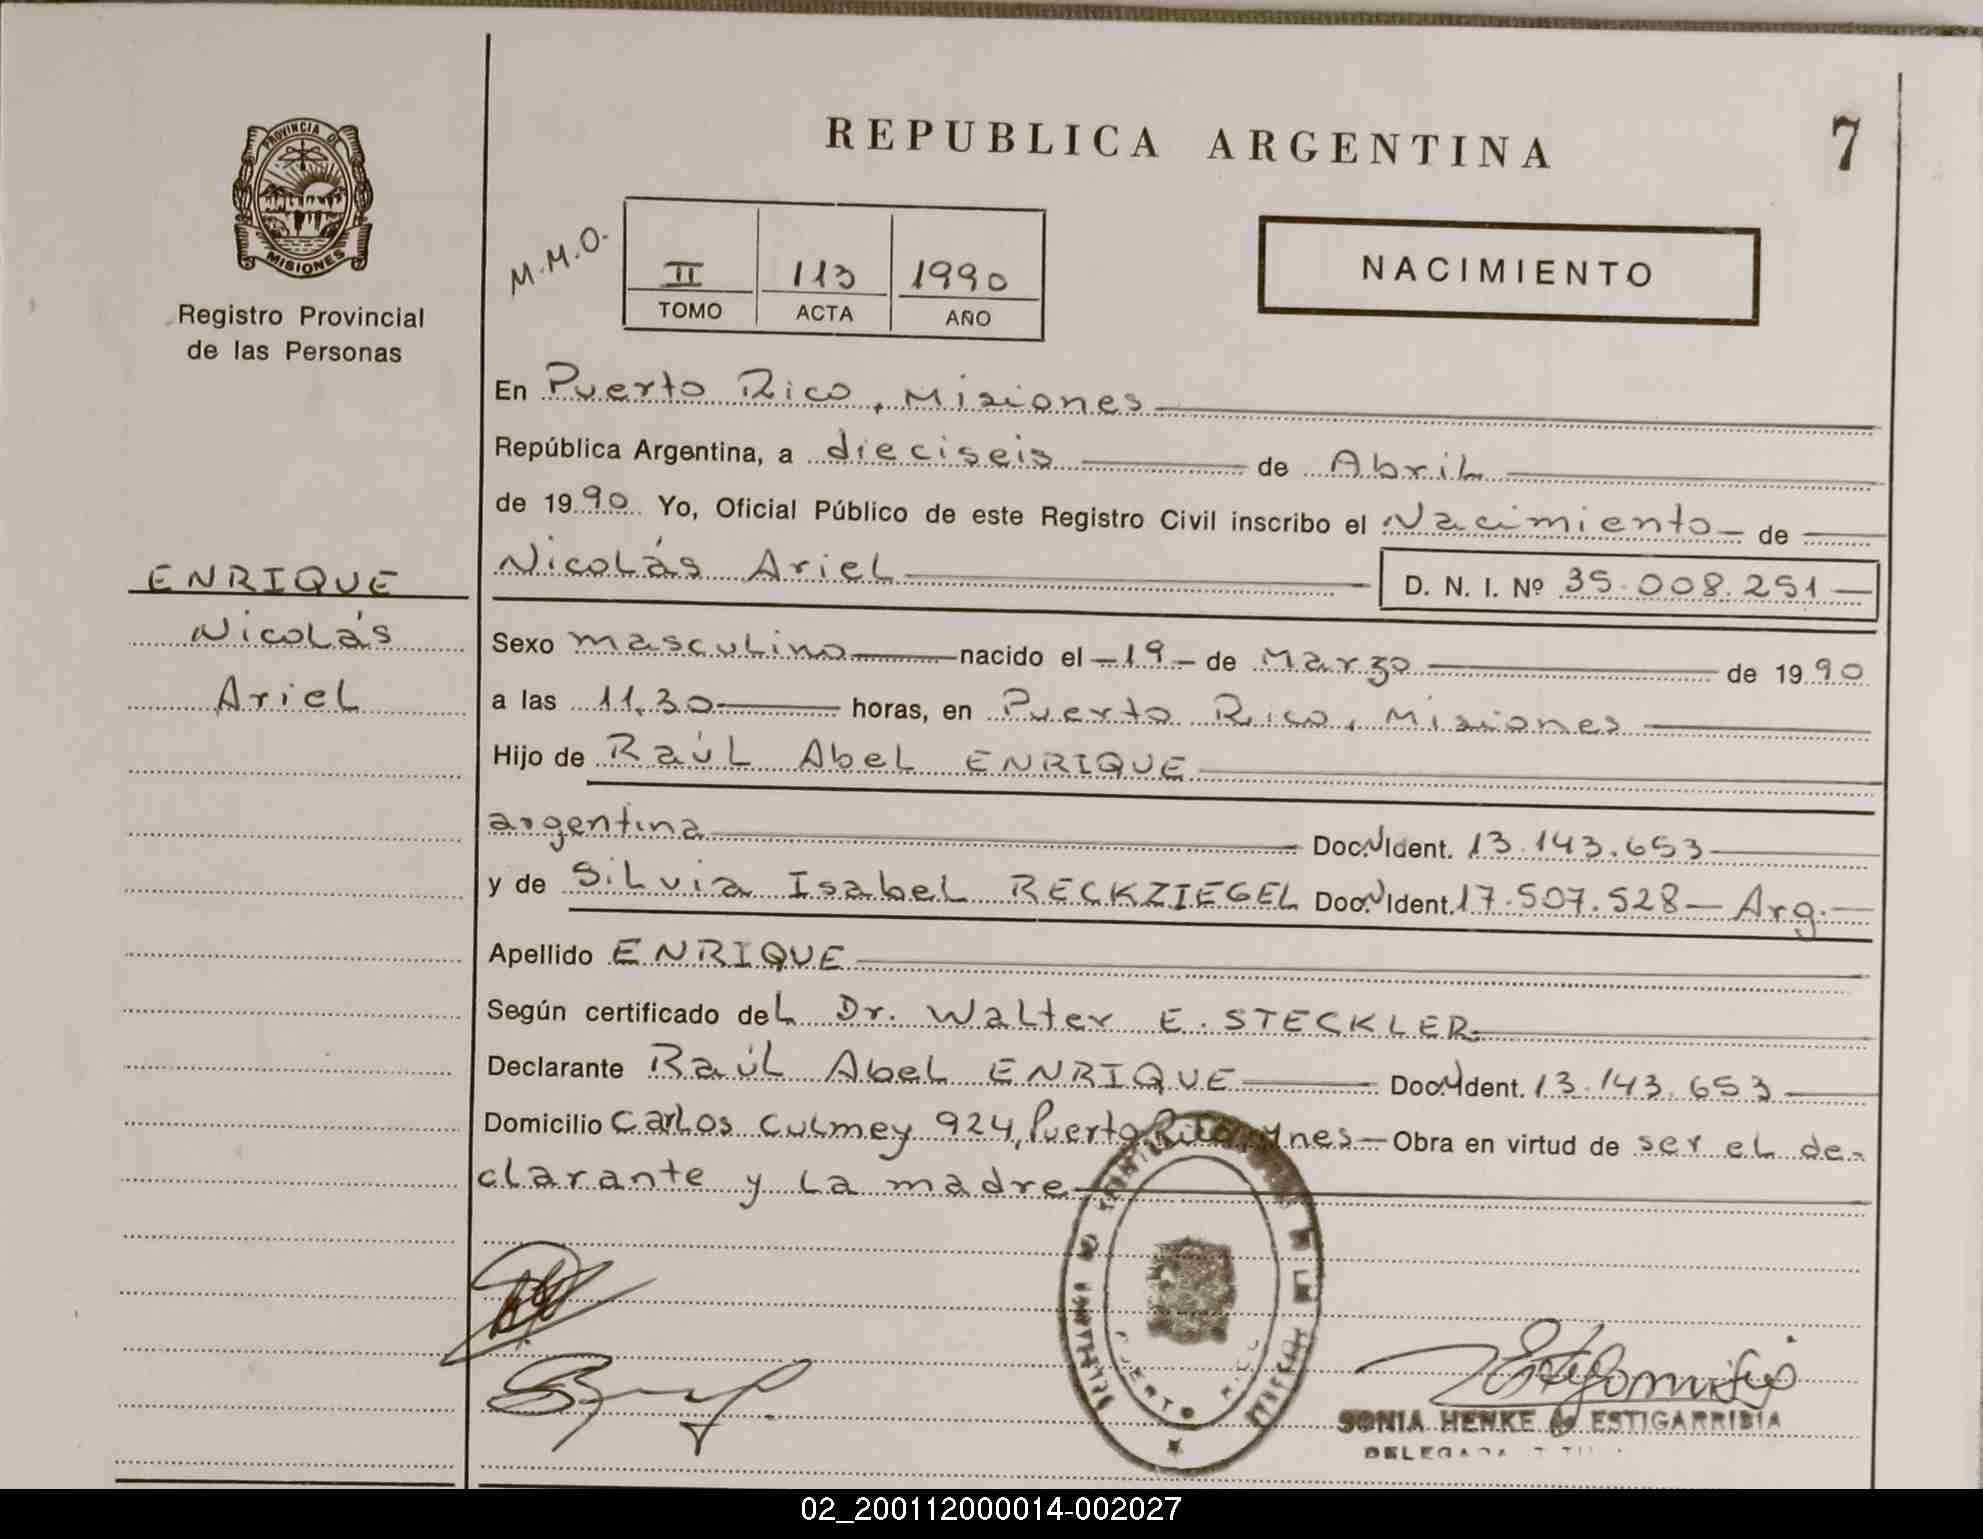 REPUBLICA ARGENTINA
7
PROVINCIA DE
MISIONES
Registro Provincial
de las Personas
M.M.O.
II 113 1990
TOMO ACTA AÑO
NACIMIENTO
En Puerto Rico, Misiones
República Argentina, a dieciseis de Abril
de 1990 Yo, Oficial Público de este Registro Civil inscribo el Nacimiento de
Nicolás Ariel D. N. I. Nº 35.008.251
ENRIQUE
Nicolás
Ariel
Sexo masculino nacido el 19 de Marzo de 1990
a las 11,30 horas, en Puerto Rico, Misiones
Hijo de Raúl Abel ENRIQUE
argentina Doc. N Ident. 13.143.653
y de Silvia Isabel RECKZIEGEL Doc. N Ident. 17.507.528 - Arg.
Apellido ENRIQUE
Según certificado del Dr. Walter E. STECKLER
Declarante Raúl Abel ENRIQUE Doc. N Ident. 13.143.653
Domicilio Carlos Culmey 924, Puerto Rico Mnes Obra en virtud de ser el de-
clarante y la madre
PUERTO RICO
SONIA HENKE de ESTIGARRIBIA
02_200112000014-002027